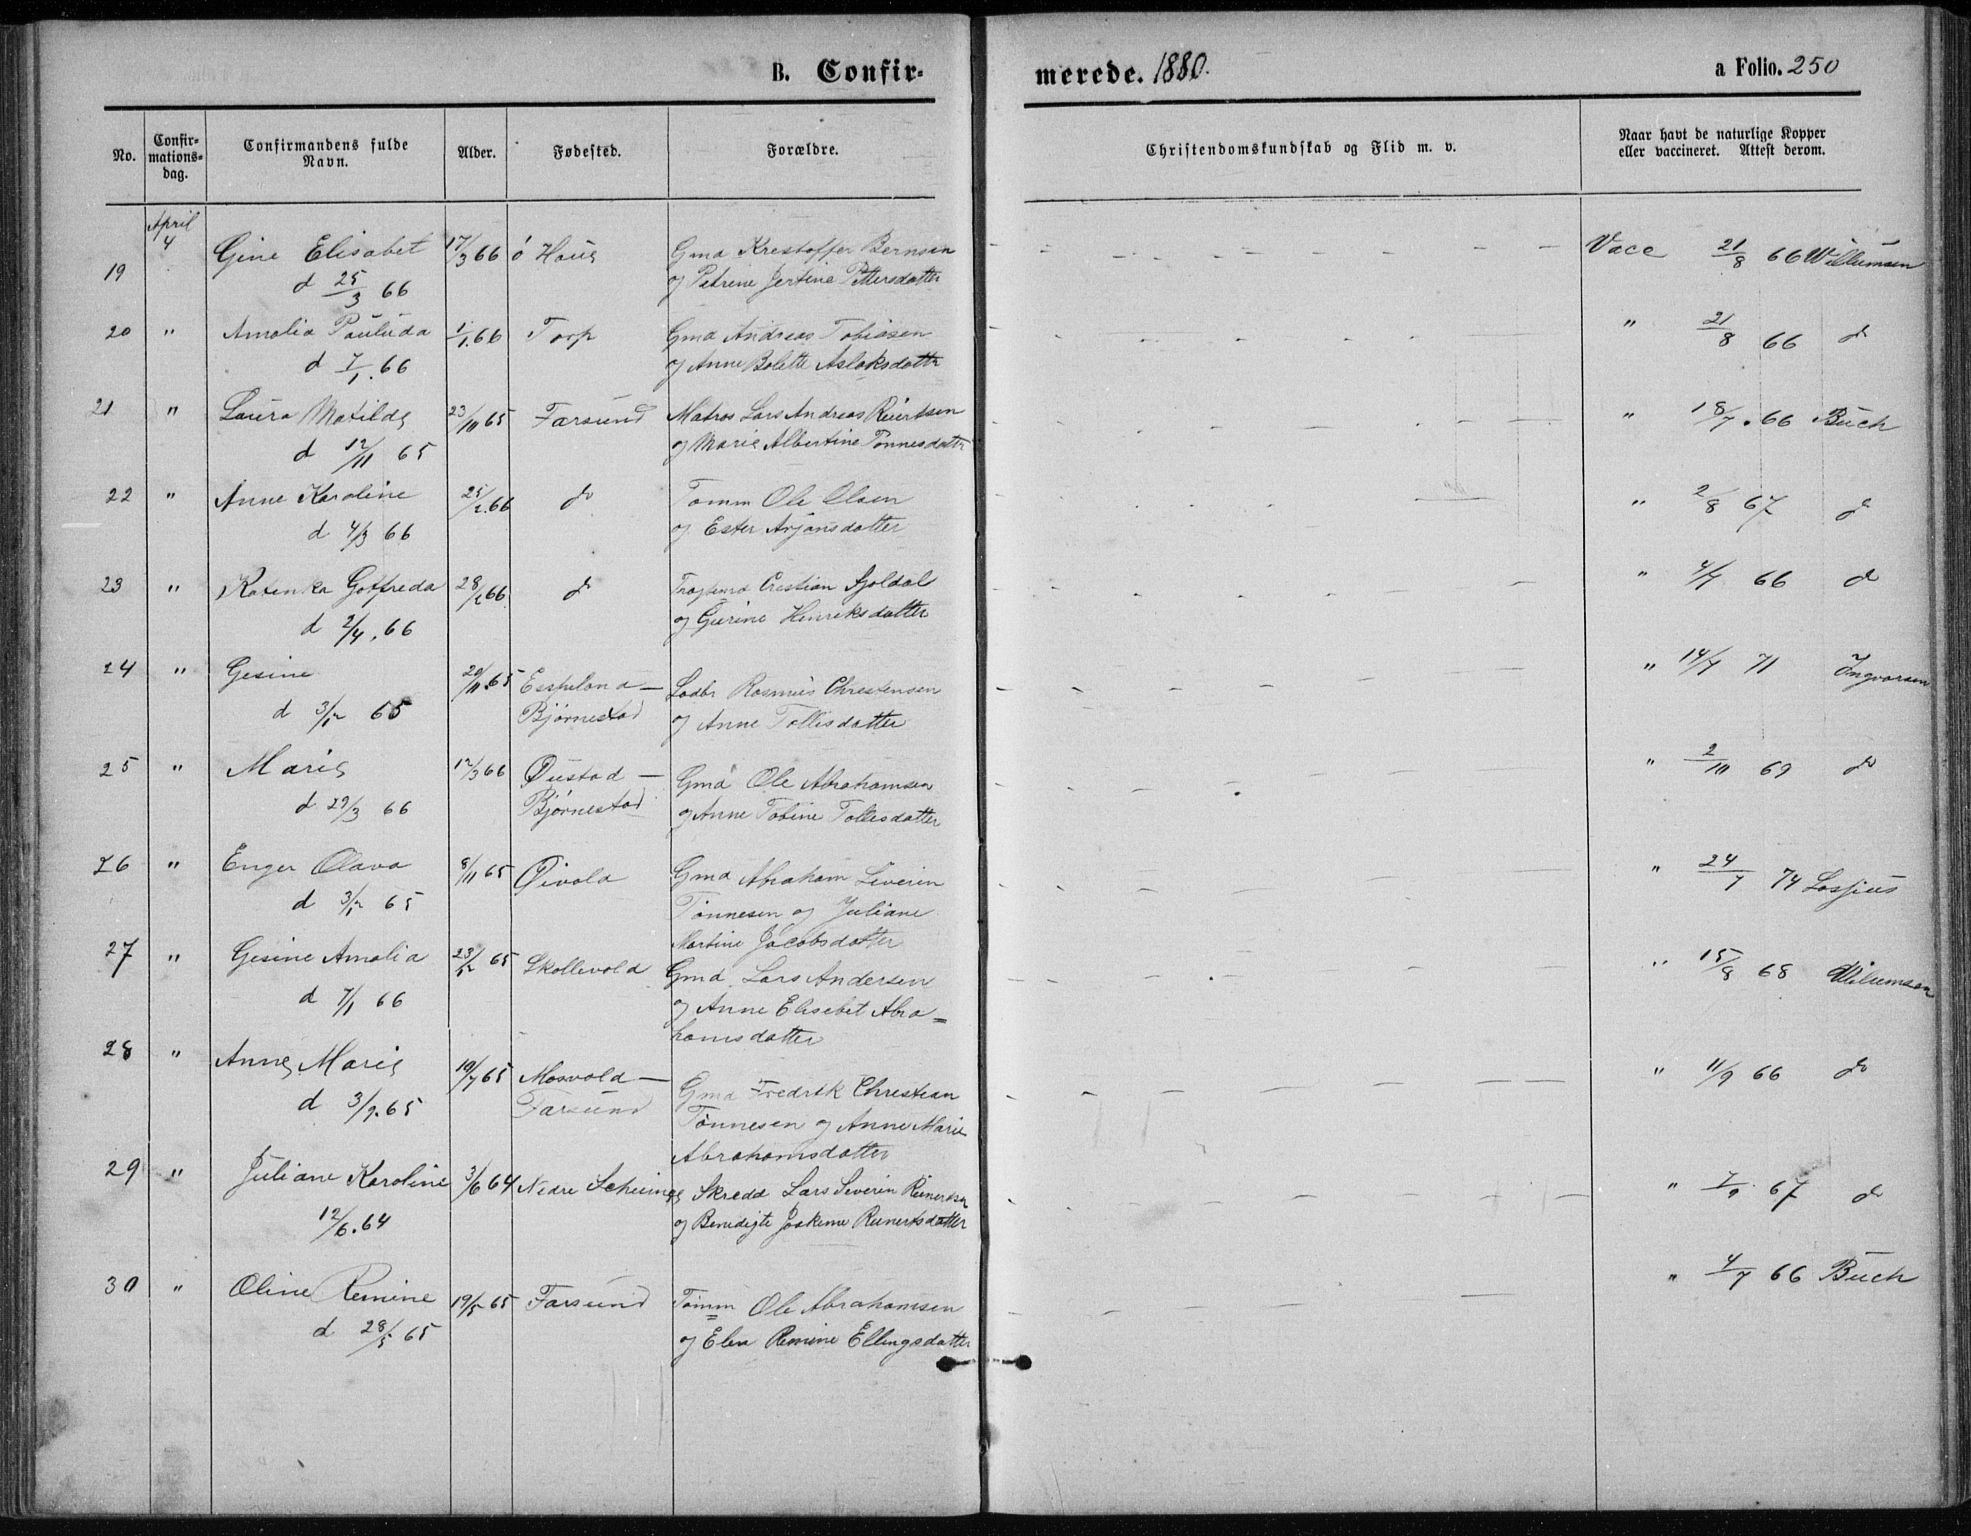 B. Confir-
merede. 1880.
a Folio. 250
No.
Confir-
mations-
dag.
Confirmandens fulde
Navn.
Alder.
Fødested.
Forældre.
Christendomskundskab og Flid m. v.
Naar havt de naturlige Kopper
eller vaccineret. Attest derom.
April
4
19 Gine Elisabet 17/3 66 ö Haus Gmd Krestoffer Bernsen Vacc 21/8 66 Willumsen
d 25/3 66 og Petrine Jertine Pettersdatter
20 " Amalia Pauluda 1/1.66 Torp Gmd Andreas Tobiasen " 21/8 66 do
d 7/1.66 og Anne Bolette Aslaksdatter
21 " Laura Matilde 23/10 65 Farsund Matros Lars Andreas Reiertsen " 18/7.66 Buch
d 12/11 65 og Marie Albertine Tønnesdatter
22 " Anne Karoline 25/2.66 do Tømm Ole Olsen " 2/8 67 do
d 4/3 66 og Ester Arjansdatter
23 " Katinka Gotfreda 28/2 66 do Cristian Fjoldal " 4/7 66 do
d 2/4.66 og Gurine Henriksdatter
24 " Gesine 20/11.65 Espeland — Lodbr Rasmus Christensen " 14/7 71 Ingvarsen
d 3/12 65 Bjørnestad og Anne Tollisdatter
25 " Marie 12/3 66 Øustad — Gmd Ole Abrahamsen " 2/10 69 do
d 29/3 66 Bjørnestad og Anne Tobine Tollisdatter
26 " Enger Olava 8/11 65 Øivold Gmd Abraham Severin " 24/7 74 Lossius
d 3/12 65 Tønnesen og Juliane
Martine Jacobsdatter
27 " Gesine Amalia 23/12 65 Skollevold Gmd. Lars Andersen " 15/8 68 Wilumsen
d 7/1 66 og Anne Elisebet Abra=
hamsdatter
28 " Anne Marie 19/7 65 Mosvold — Gmd Fredrik Christian " 11/9 66 do
d 3/9.65 Farsund Tønnesen og Anne Marie
Abrahamsdatter
29 " Juliane Karoline 3/6 64 Nedre Skredd Lars Severin Reinertsen " 7/9 67 do
12/6.64 og Benedigte Joskime Reinertsdatter
30 " Oline Remine 19/5 65 Farsund Tømm Ole Abrahamsen " 4/7 66 Buch
d 28/5 65 og Elen Remine Ellingsdatter